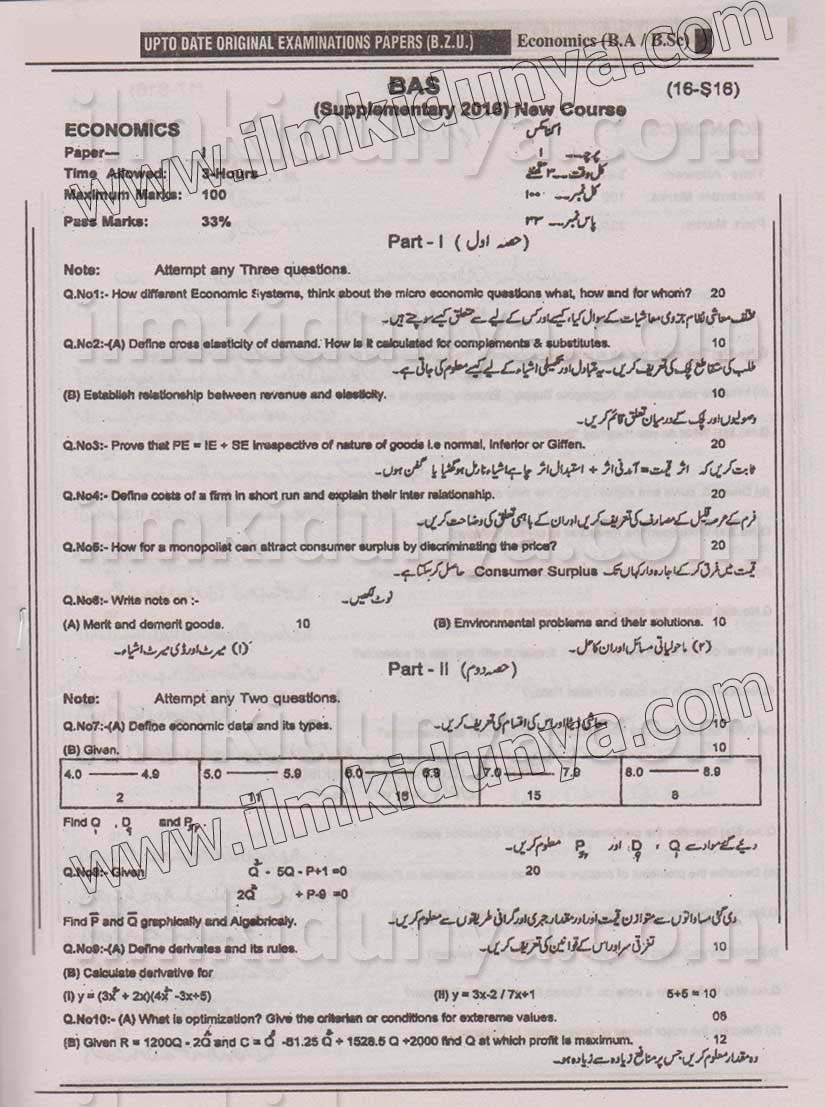 UPTO DATE ORIGINAL EXAMINATIONS PAPERS (B.Z.U.) Economics (B.A / B.Sc)
BAS (16-S16)
(Supplementary 2016) New Course
ECONOMICS اکنامکس
Paper--- I پرچہ۔۔۔ ۱
Time Allowed: 3-Hours کل وقت۔۔۔ ۳ گھنٹے
Maximum Marks: 100 کل نمبر۔۔۔ ۱۰۰
Pass Marks: 33% پاس نمبر۔۔۔ ۳۳
Part - I (حصہ اول)
Note: Attempt any Three questions.
Q.No1:- How different Economic Systems, think about the micro economic questions what, how and for whom? 20
مختلف معاشی نظام جزوی معاشیات کے سوال کیا، کیسے اور کس کے لیے سے متعلق کیسے سوچتے ہیں۔
Q.No2:-(A) Define cross elasticity of demand. How is it calculated for complements & substitutes. 10
طلب کی متقاطع لچک کی تعریف کریں۔ یہ متبادل اور تکمیلی اشیاء کے لیے کیسے معلوم کی جاتی ہے۔
(B) Establish relationship between revenue and elasticity. 10
وصولیوں اور لچک کے درمیان تعلق قائم کریں۔
Q.No3:- Prove that PE = IE + SE irrespective of nature of goods i.e normal, Inferior or Giffen. 20
ثابت کریں کہ اثر قیمت = آمدنی اثر + استبدال اثر چاہے اشیاء نارمل ہو گھٹیا یا گفن ہوں۔
Q.No4:- Define costs of a firm in short run and explain their inter relationship. 20
فرم کے عرصہ قلیل کے مصارف کی تعریف کریں اور ان کے باہمی تعلق کی وضاحت کریں۔
Q.No5:- How for a monopolist can attract consumer surplus by discriminating the price? 20
قیمت میں فرق کر کے اجارہ دار کہاں تک Consumer Surplus حاصل کر سکتا ہے۔
Q.No6:- Write note on :- نوٹ لکھیں۔
(A) Merit and demerit goods. 10 (B) Environmental problems and their solutions. 10
(۱) میرٹ اور ڈی میرٹ اشیاء۔ (۲) ماحولیاتی مسائل اور ان کا حل۔
Part - II (حصہ دوم)
Note: Attempt any Two questions.
Q.No7:-(A) Define economic data and its types. معاشی ڈیٹا اور اس کی اقسام کی تعریف کریں۔ 10
(B) Given. 10
4.0 ——— 4.9 5.0 ——— 5.9 6.0 ——— 6.9 7.0 ——— 7.9 8.0 ——— 8.9
2 11 15 8
Find Q₁, D₉ and P دیئے گئے مواد سے Q₁ ، D₉ اور P معلوم کریں۔
Q.No8:- Given Q² - 5Q - P+1 =0 20
2Q² + P-9 =0
Find P̅ and Q̅ graphically and Algebricaly. دی گئی مساواتوں سے متوازن قیمت اور مقدار جبری اور گرافی طریقوں سے معلوم کریں۔
Q.No9:-(A) Define derivates and its rules. تفرقی سر اور اس کے قوانین کی تعریف کریں۔ 10
(B) Calculate derivative for
(I) y = (3x² + 2x)(4x² -3x+5) (II) y = 3x-2 / 7x+1 5+5 = 10
Q.No10:- (A) What is optimization? Give the criterian or conditions for extereme values. 08
(B) Given R = 1200Q - 2Q² and C = Q³ -61.25 Q² + 1528.5 Q +2000 find Q at which profit is maximum. 12
وہ مقدار معلوم کریں جس پر منافع زیادہ سے زیادہ ہو۔
www.ilmkidunya.com
www.ilmkidunya.com